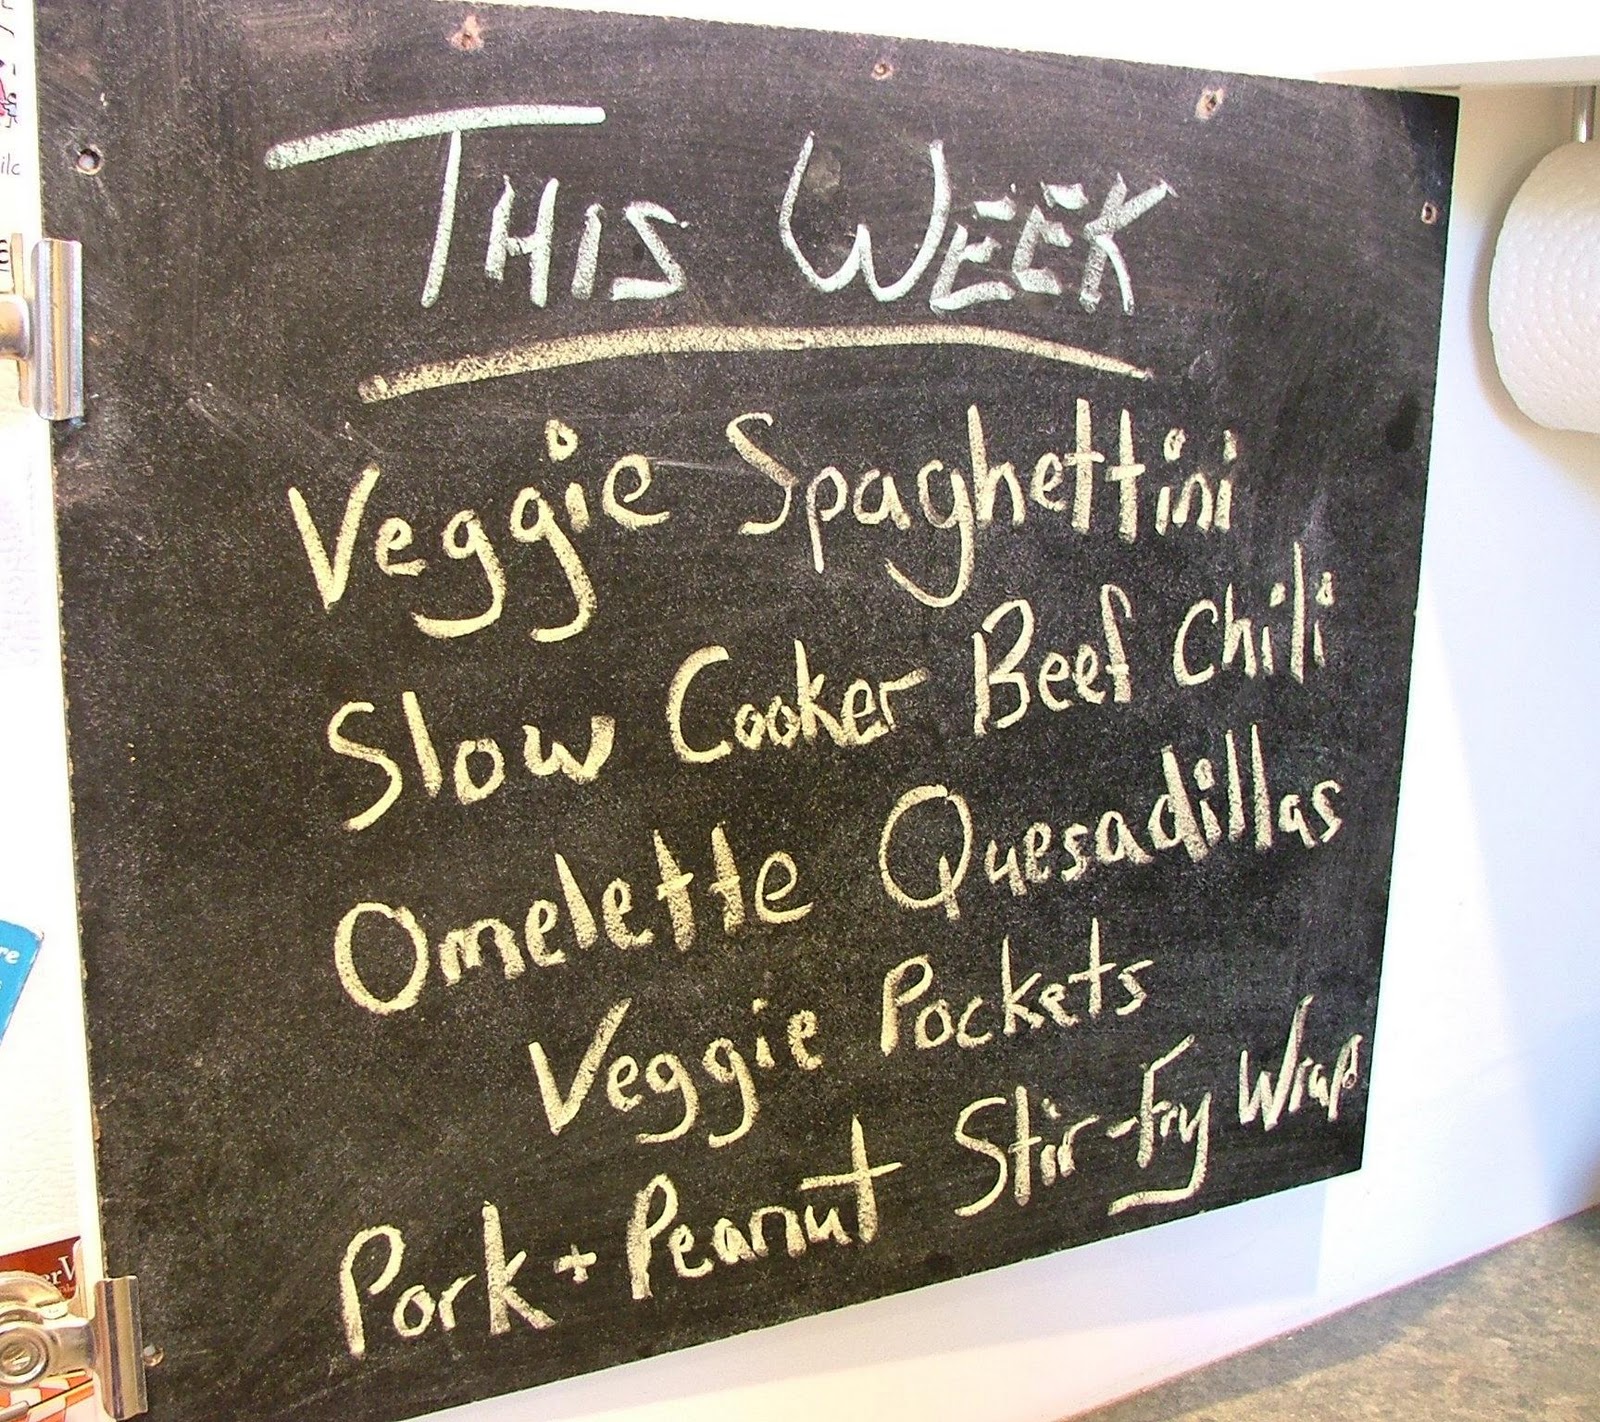 THIS WEEK
Veggie Spaghettini
Slow Cooker Beef Chili
Omelette Quesadillas
Veggie Pockets
Pork + Peanut Stir-Fry Wraps